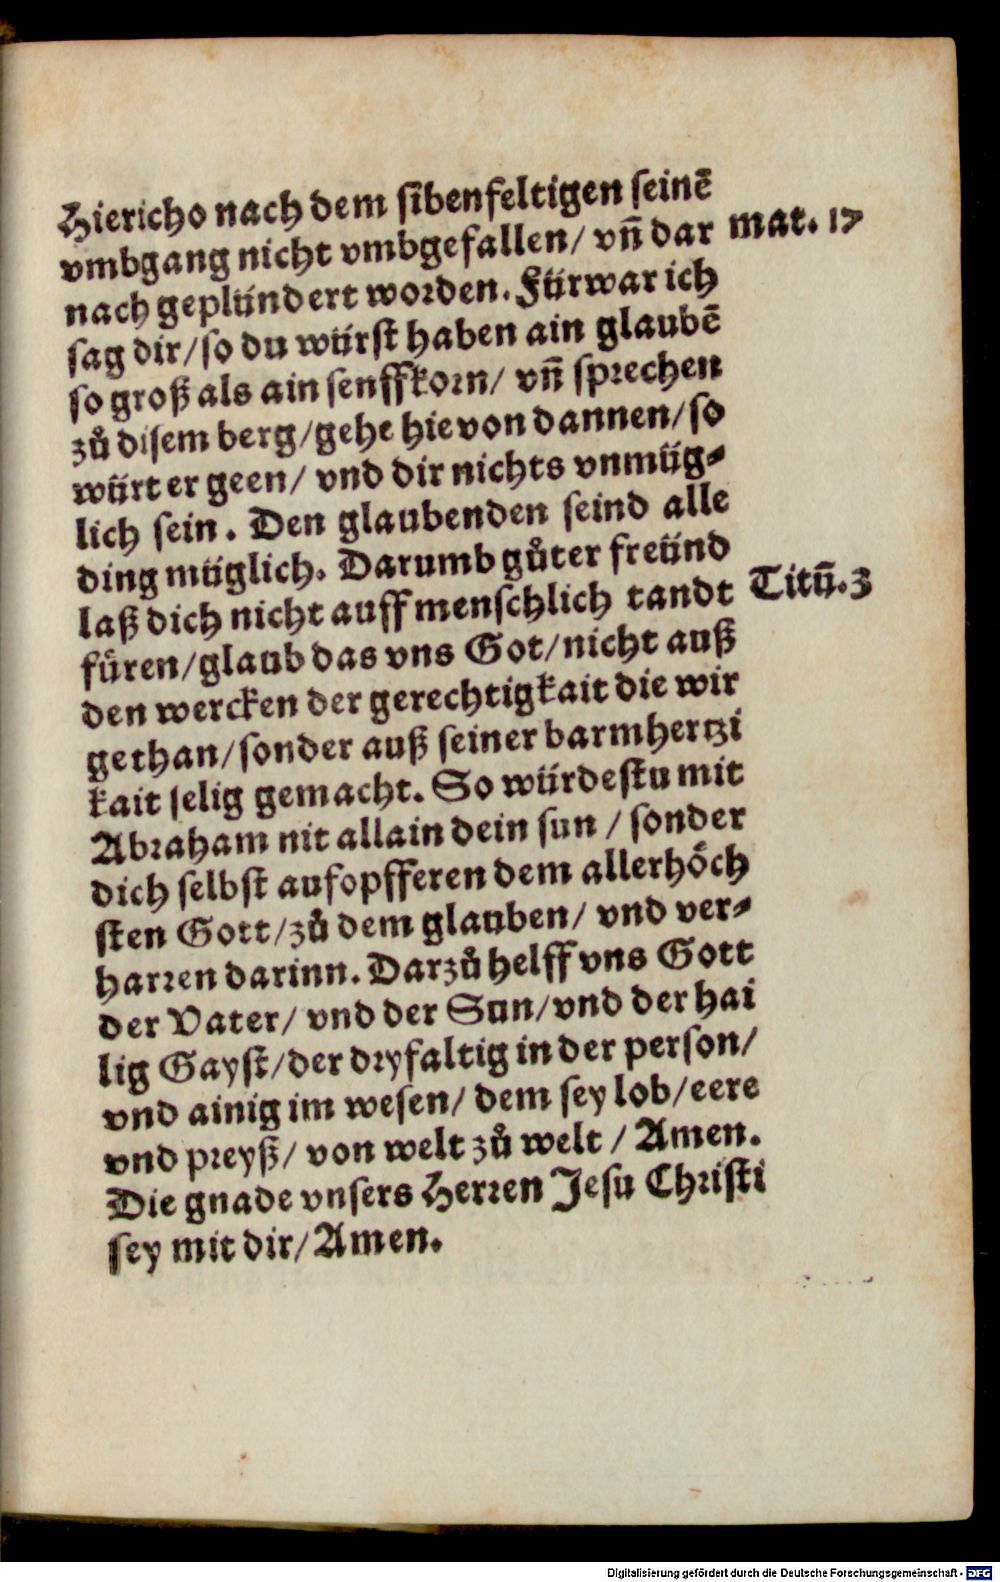 Hiericho nach dem sibenfeltigen seinē
vmbgang nicht vmbgefallen/ vn̄ dar
mat. 17
nach geplündert worden. Fürwar ich
sag dir/ so du würst haben ain glaubē
so groß als ain senffkorn/ vn̄ sprechen
zů disem berg/ gehe hie von dannen/ so
würt er geen/ vnd dir nichts vnmüg⸗
lich sein. Den glaubenden seind alle
ding müglich. Darumb gůter freünd
laß dich nicht auff menschlich tandt
Titū. 3
füren/ glaub das vns Got/ nicht auß
den wercken der gerechtigkait die wir
gethan/ sonder auß seiner barmhertzi
kait selig gemacht. So würdestu mit
Abraham nit allain dein sun / sonder
dich selbst aufopfferen dem allerhöch
sten Gott/ zů dem glauben/ vnd ver⸗
harren darinn. Darzů helff vns Gott
der Vater/ vnd der Sun/ vnd der hai
lig Gayst/ der dryfaltig in der person/
vnd ainig im wesen/ dem sey lob/ eere
vnd preyß/ von welt zů welt / Amen.
Die gnade vnsers Herren Jesu Christi
sey mit dir/ Amen.
Digitalisierung gefördert durch die Deutsche Forschungsgemeinschaft - DFG